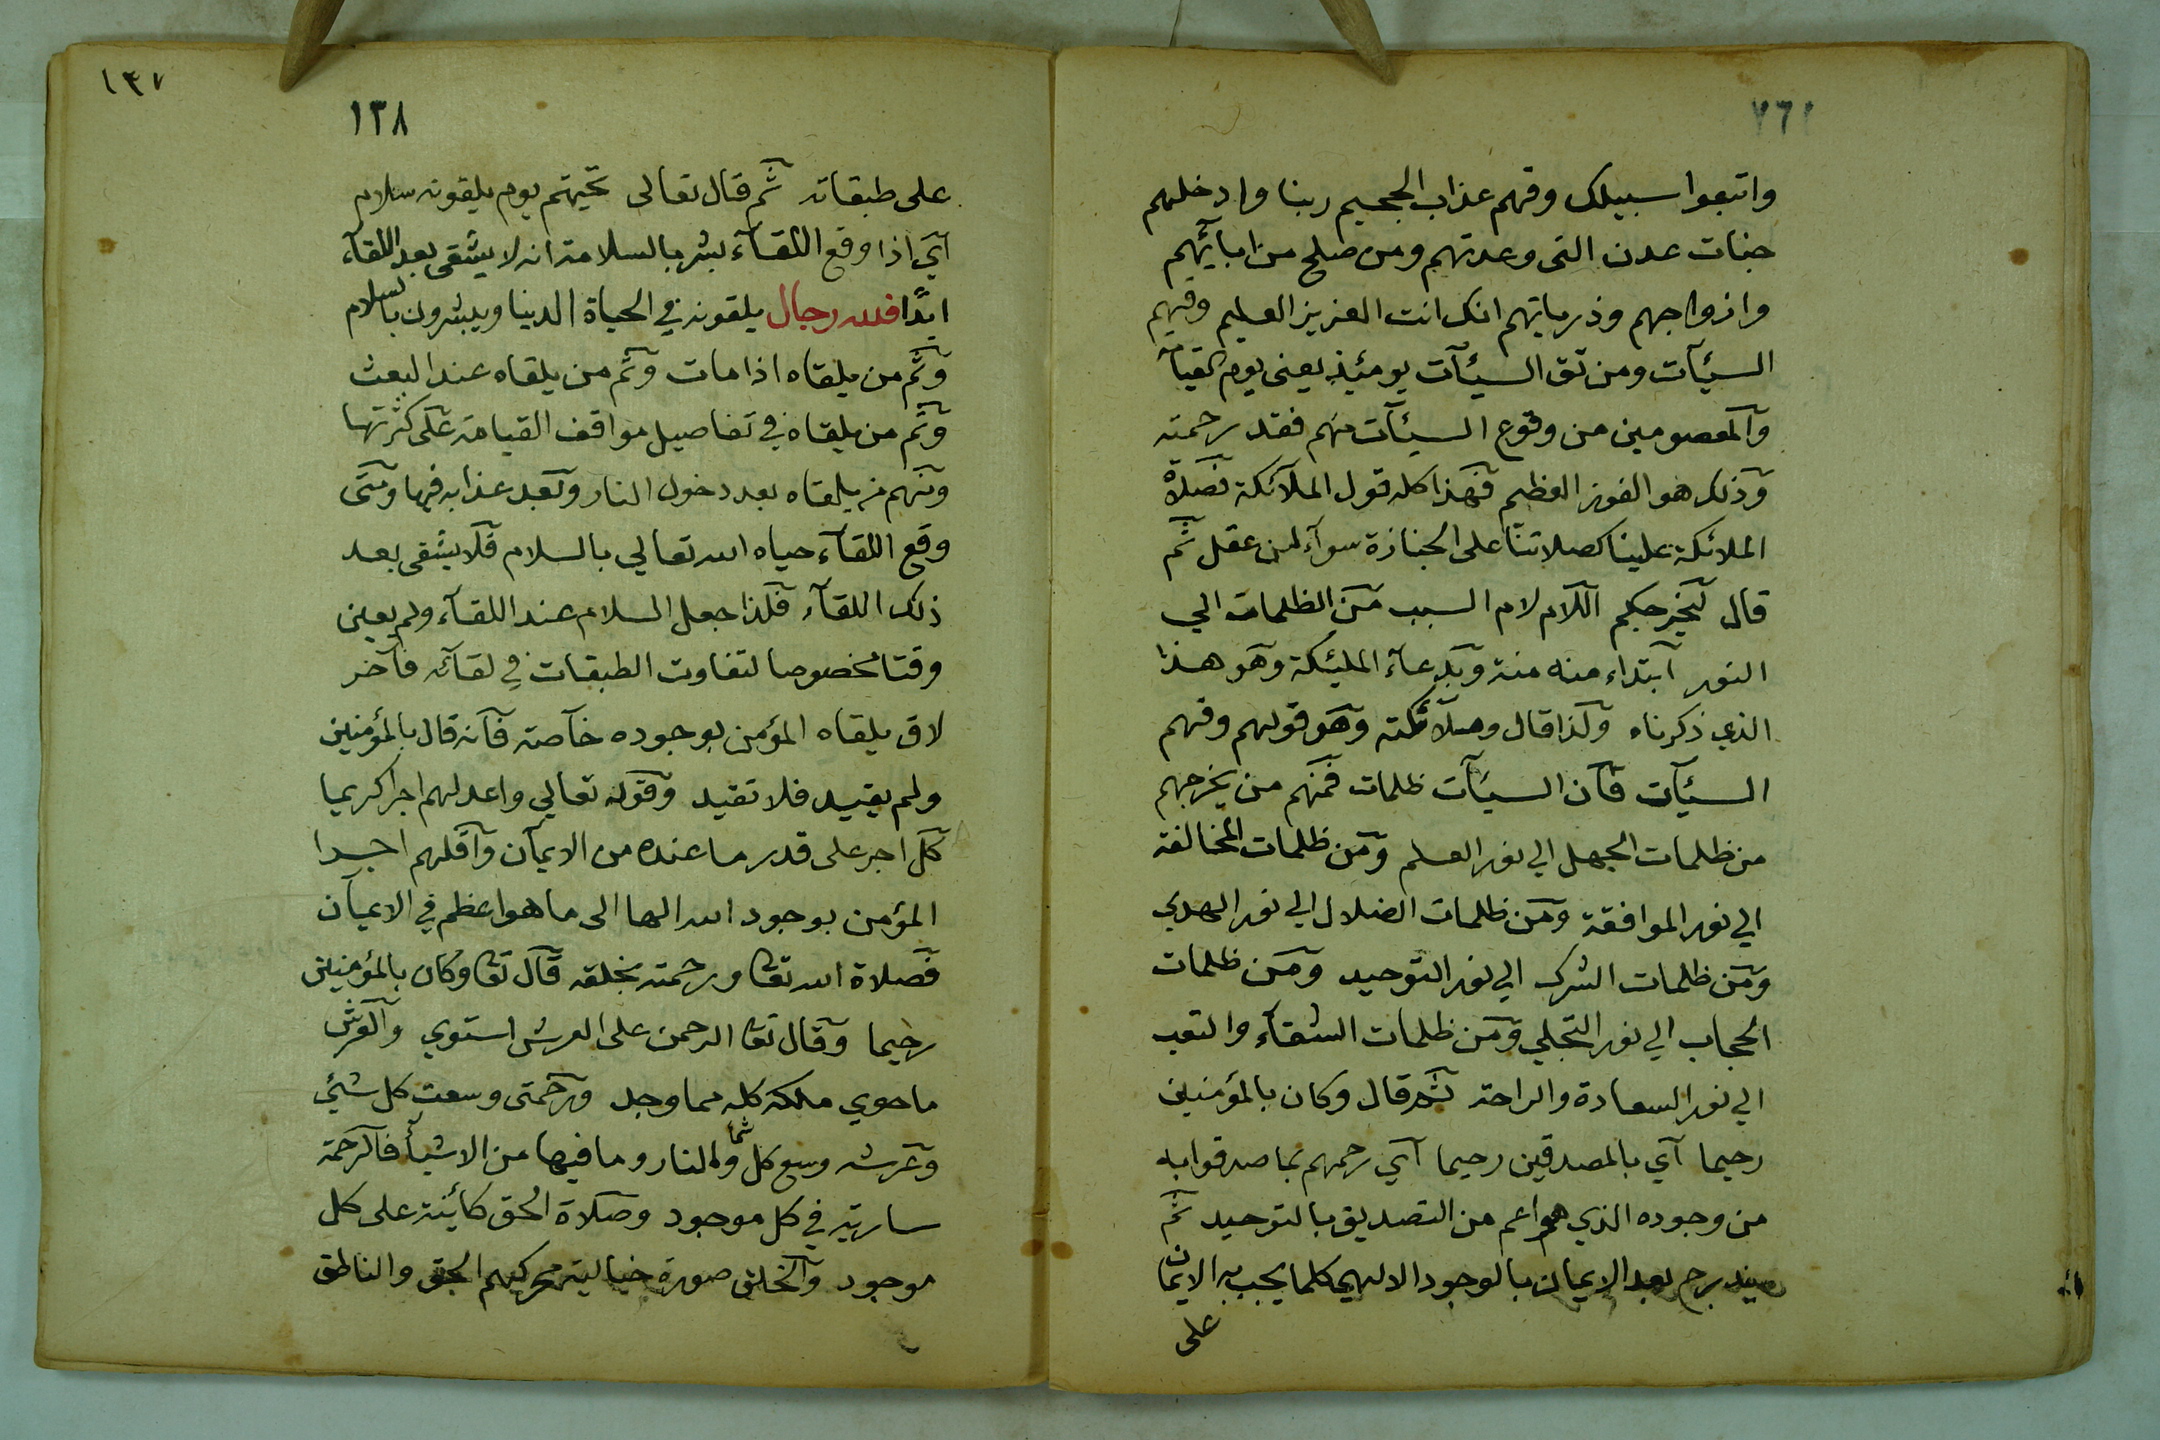 واتبعوا سبيلك وقهم عذاب الجحيم ربنا وادخلهم
جنات عدن التى وعدتهم ومن صلح من ابائهم
وازواجهم وذرياتهم انك انت العزيز العليم وقهم
السيئآت ومن تق السيئآت يومئذ يعنى يوم القيامة
والمعصومين من وقوع السيئآت منهم فقد رحمته
وذلك هو الفوز العظيم فهذا كله قول الملآئكة فصلاة
الملائكة علينا كصلاتنا على الجنازة سوآء لمن عقل ثم
قال ليخرجكم اللام لام السبب من الظلمات الي
النور ابتداء منه منة وبدعآء المليئكة وهو هذا
الذي ذكرناه ولذا قال وملآئكته وهو قولهم وقهم
السيئآت فان السيئآت ظلمات فمنهم من يخرجهم
من ظلمات الجهل الي نور العلم ومن ظلمات المخالفة
الي نور الموافقة ومن ظلمات الضلال الي نور الهدي
ومن ظلمات الشرك الي نور التوحيد ومن ظلمات
الحجاب الي نور التجلي ومن ظلمات الشقآء والتعب
الي نور السعادة والراحة ثم قال وكان بالمؤمنين
رحيما اي بالمصدقين رحيما اي رحمهم بما صدقوا به
من وجوده الذي هو اعم من التصديق بالتوحيد ثم
يندرج بعد الايمان بالوجود الالهي كلما يجب به الايمان
على
١٣٧
١٣٨
على طبقاته ثم قال تعالى تحيتهم يوم يلقونه سلام
اي اذا وقع اللقآء بشر بالسلامة انه لا يشقى بعد اللقآء
ابدا فلله رجال يلقونه في الحياة الدنيا ويبشرون بالسلام
وثم من يلقاه اذا مات وثم من يلقاه عند البعث
وثم من يلقاه في تفاصيل مواقف القيامة على كثرتها
ومنهم من يلقاه بعد دخول النار وبعد عذابه فيها ومتى
وقع اللقآء حياه الله تعالي بالسلام فلا يشقى بعد
ذلك اللقآء فلذا جعل السلام عند اللقآء ولم يعين
وقتا مخصوصا لتفاوت الطبقات في لقآئه فآخر
لاق يلقاه المؤمن بوجوده خآصة فانه قال بالمؤمنين
ولم يقيد فلا تقيد وقوله تعالي واعد لهم اجرا كريما
كل اجر على قدر ما عنده من الايمان واقلهم اجرا
المؤمن بوجود الله الها الى ما هو اعظم في الايمان
فصلاة الله تعا ورحمته بخلقه قال تعا وكان بالمؤمنين
رحيما وقال تعا الرحمن على العرش استوي والعرش
ما حوي ملكه كله مما وجد ورحمتى وسعت كل شيئ
وعرشه وسع كل شئ والنار وما فيها من الاشيآ فالرحمة
سارية في كل موجود وصلاة الحق كائنة على كل
موجود والخلق صورة خيالية محركهم الحق والناطق